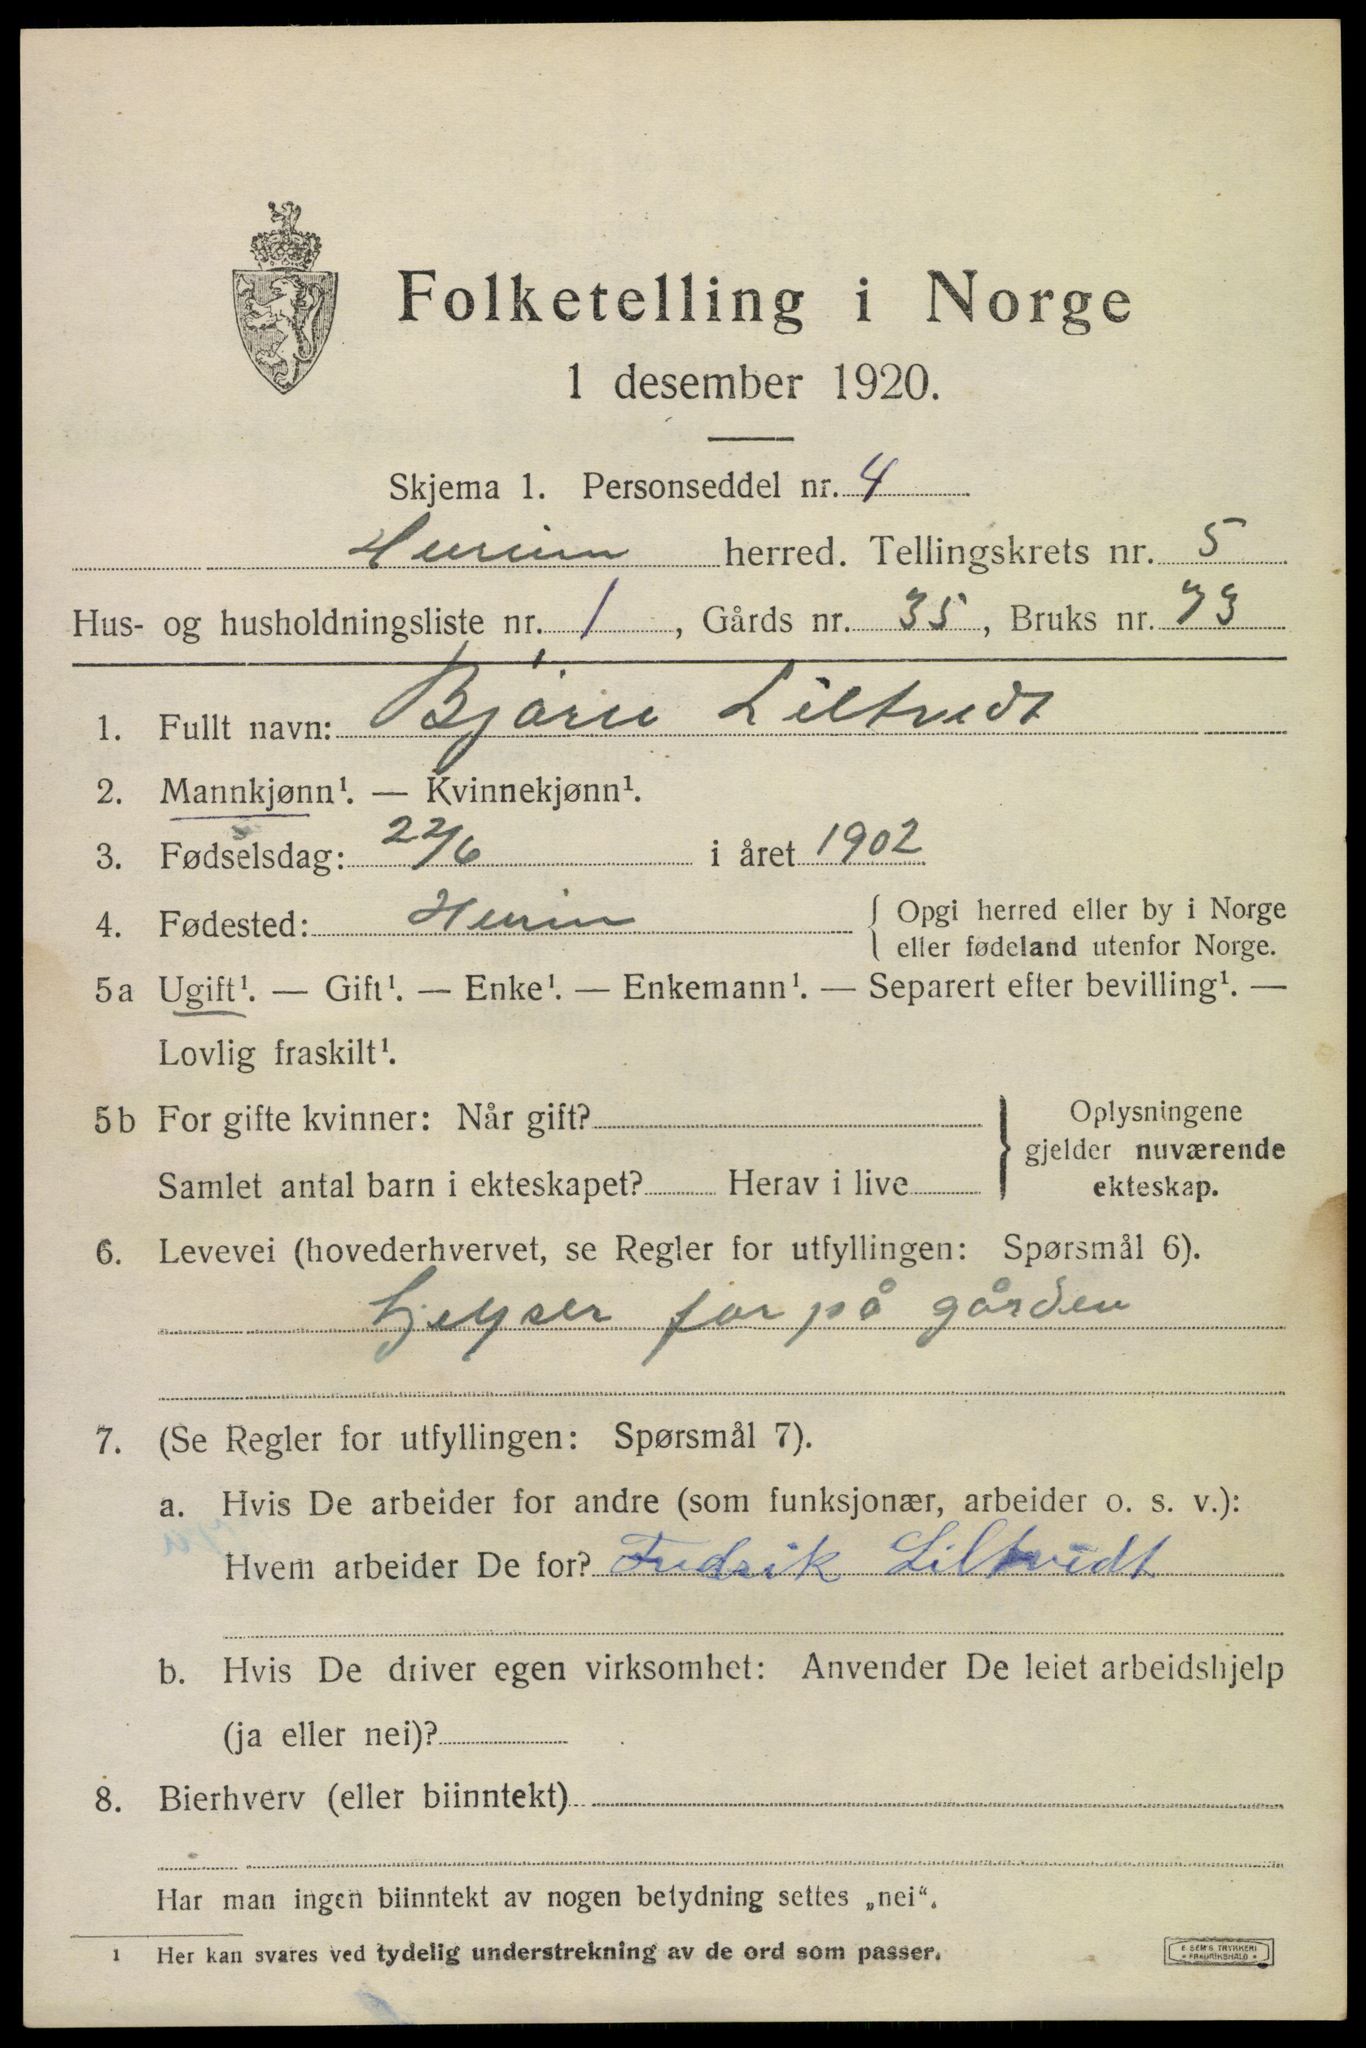 Folketelling i Norge
1 desember 1920.
Skjema 1. Personseddel nr. 4
Hurum herred. Tellingskrets nr. 5
Hus- og husholdningsliste nr. 1, Gårds nr. 35, Bruks nr. 73
1. Fullt navn: Bjarne Liltvedt
2. Mannkjønn¹. — Kvinnekjønn¹.
3. Fødselsdag: 22/6 i året 1902
4. Fødested: Hurum { Opgi herred eller by i Norge
eller fødeland utenfor Norge.
5a Ugift¹. — Gift¹. — Enke¹. — Enkemann¹. — Separert efter bevilling¹. —
Lovlig fraskilt¹.
5b For gifte kvinner: Når gift?
Samlet antal barn i ekteskapet? Herav i live
} Oplysningene
gjelder nuværende
ekteskap.
6. Levevei (hovederhvervet, se Regler for utfyllingen: Spørsmål 6).
hjelper far på gården
7. (Se Regler for utfyllingen: Spørsmål 7).
a. Hvis De arbeider for andre (som funksjonær, arbeider o. s. v.):
Hvem arbeider De for? Fredrik Liltvedt
b. Hvis De driver egen virksomhet: Anvender De leiet arbeidshjelp
(ja eller nei)?
8. Bierhverv (eller biinntekt)
Har man ingen biinntekt av nogen betydning settes „nei“.
1 Her kan svares ved tydelig understrekning av de ord som passer.
E. SEM'S TRYKKERI
FREDRIKSHALD